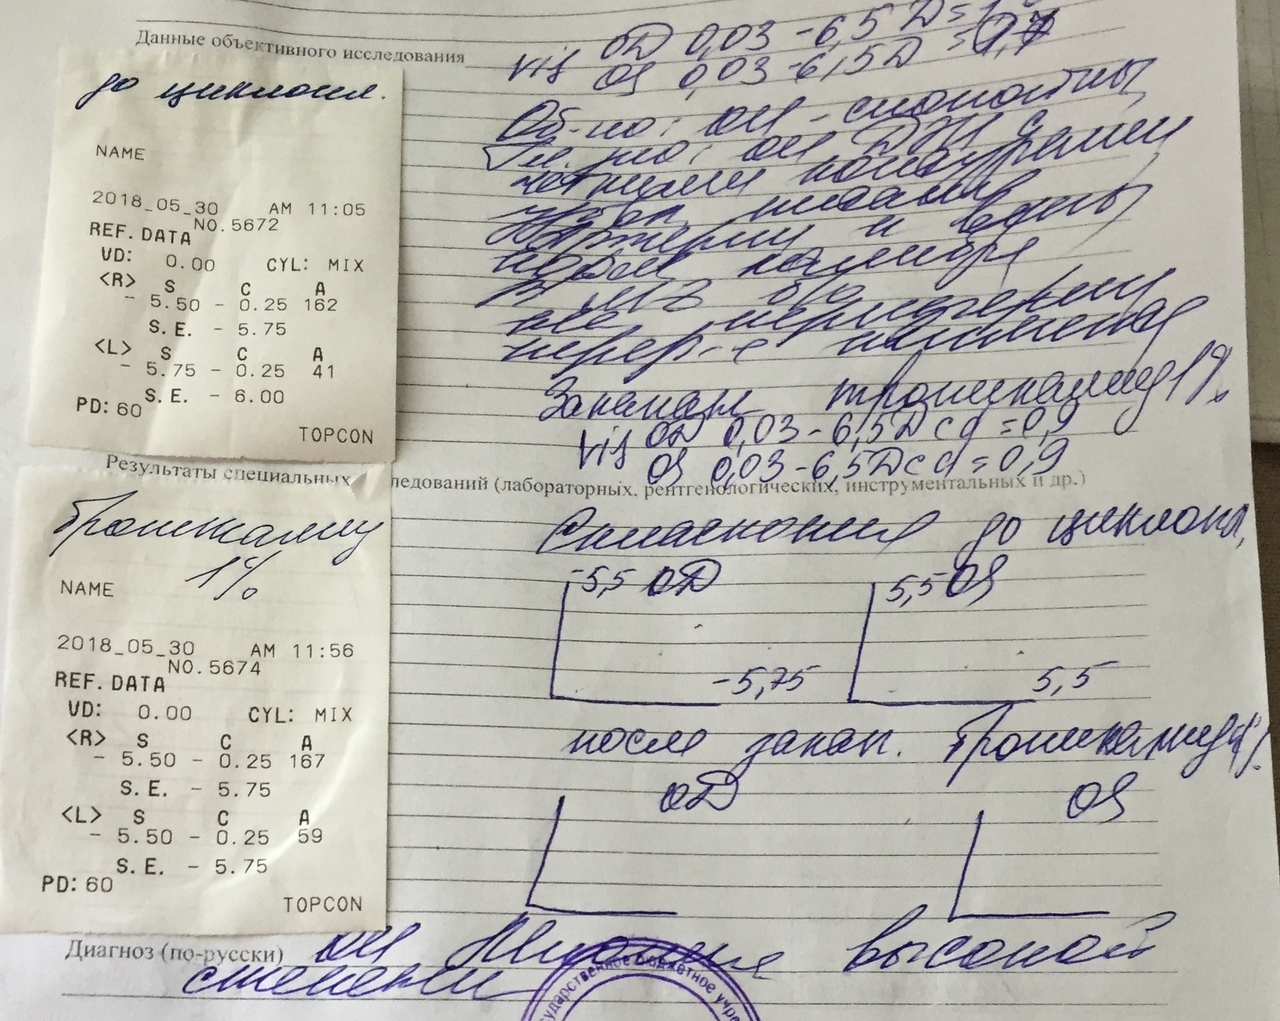 Данные объективного исследования
Vis OD 0,03 -6,5 D =
OS 0,03 -6,5 D = 0,7
до циклопл.
NAME
2018_05_30 AM 11:05
NO.5672
REF. DATA
VD: 0.00 CYL: MIX
<R> S C A
- 5.50 - 0.25 162
S.E. - 5.75
<L> S C A
- 5.75 - 0.25 41
S.E. - 6.00
PD: 60
TOPCON
Об-но: OU - спокойны
Гл. дно: OU ДЗН с
четкими контурами
артерии и вены
калибра
на периферии
Закапан тропикамид 1%
Vis OD 0,03 -6,5D cd = 0,9
OS 0,03 -6,5D cd = 0,9
Результаты специальных ледований (лабораторных, рентгенологических, инструментальных и др.)
Тропикамид
1%
NAME
2018_05_30 AM 11:56
NO.5674
REF. DATA
VD: 0.00 CYL: MIX
<R> S C A
- 5.50 - 0.25 167
S.E. - 5.75
<L> S C A
- 5.50 - 0.25 59
S.E. - 5.75
PD: 60
TOPCON
Скиаскопия до циклопл.
-5,5 OD 5,5 OS
-5,75 5,5
после закап. тропикамид 1%
OD OS
Диагноз (по-русски) OU Миопия высокой
степени
государственное бюджетное учре